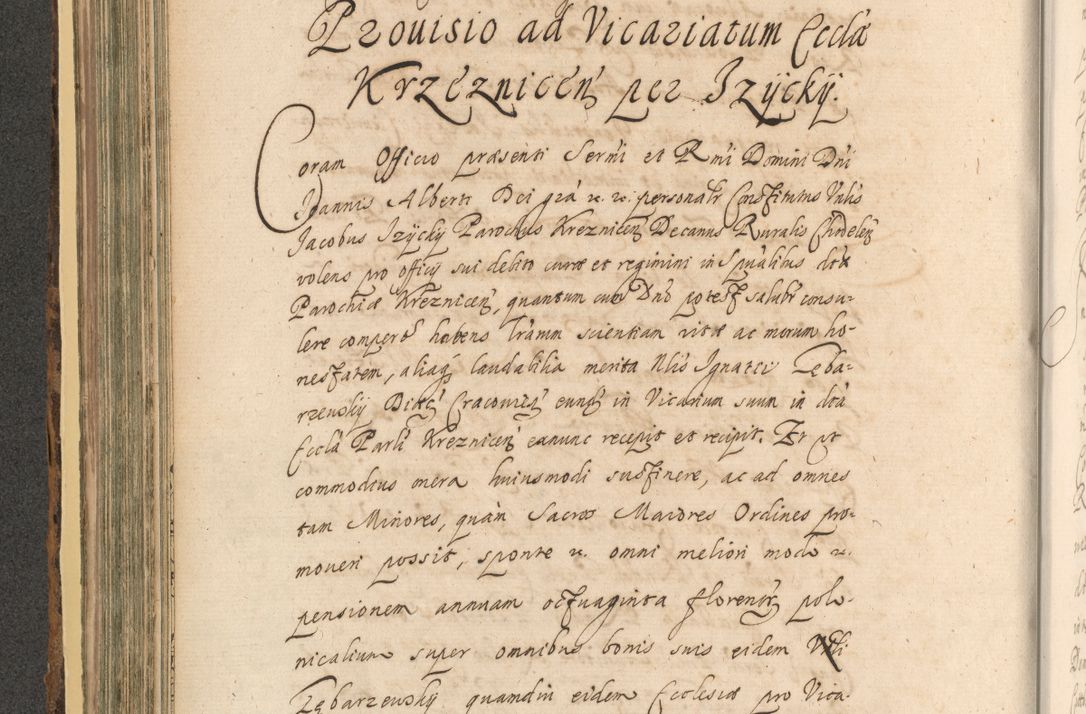 Prouisio ad Vicariatum Eccla
Krzeznicen per Izycky.
Coram Officio præsenti Sermi et Rmi Domini Dni
Joannis Alberti Dei gra etc. etc. personalr Constitutus Vnlis
Jacobus Izycky Parochus Kreznicen Decanus Ruralis Chodelen
volens pro officij sui debito curæ et regimini in Spualibus dtæ
Parochiæ Kreznicen, quantum cum Dno potest salubr consu-
lere comperto habens lram scientiam vitæ ac morum ho-
nestatem, aliaq laudabilia merita Nlis Ignatij Zęba-
rzewskij Diæc Cracouien eunq in Vicarium suum in dta
Eccla Parli Kreznicen exnunc recepit et recipit. Et vt
commodius onera huiusmodi sustinere, ac ad omnes
tam Minores, quàm Sacros Maiores Ordines pro-
moueri possit, sponte etc. omni meliori modo etc.
pensionem annuam octuaginta florenor polo-
nicalium super omnibus bonis suis eidem Nlli
Zębarzewskij quamdiu eidem Ecclesiæ pro Vica-